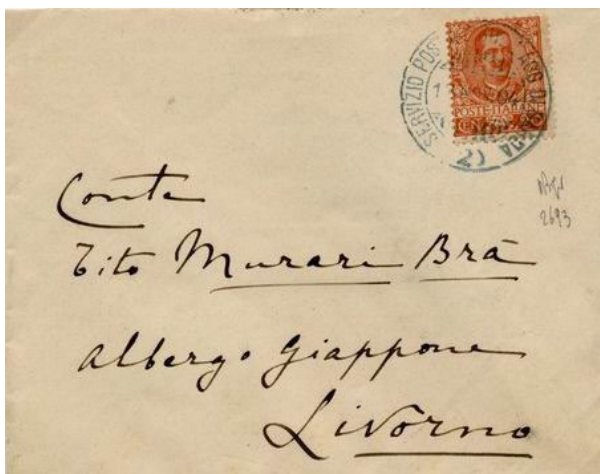 SERVIZIO POST
POSTE ITALIANE
(2)
2693
Conte
Tito Murari Brà
Albergo Giappone
Livorno